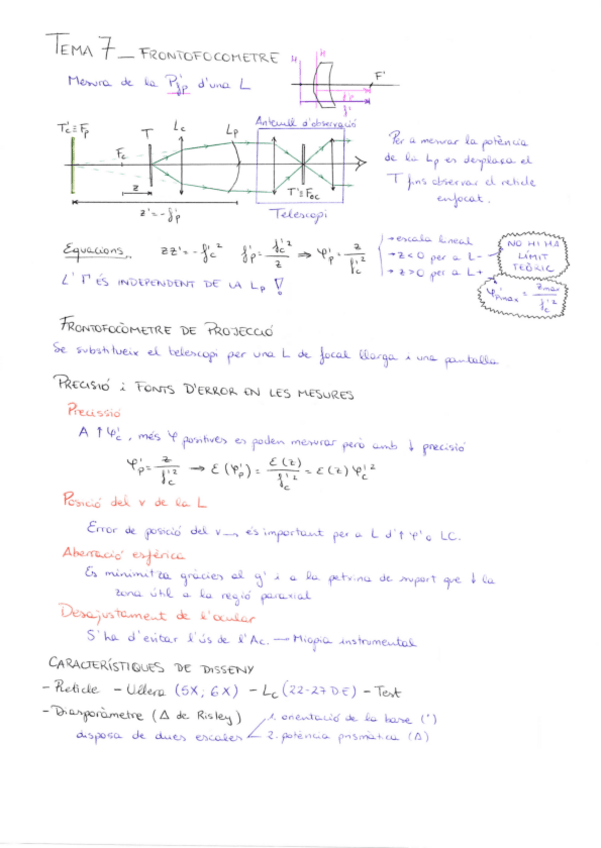 TEMA 7 _ FRONTOFOCÒMETRE
Mesura de la P f'p d'una L
H H' F'
f'p
f'
T'c ≡ Fp Fc T Lc Lp
Anteull d'observació
z
z' = -f'p
T' ≡ Foc
Telescopi
Per a mesurar la potència
de la Lp es desplaça el
T fins observar el reticle
enfocat.
Equacions. zz' = -f'c² f'p = f'c²/z ⇒ φ'p = z/f'c²
→ escala lineal
→ z < 0 per a L-
→ z > 0 per a L+
NO HI HA
LÍMIT
TEÒRIC
φ'p max = z max/f'c²
L' Γ' ÉS INDEPENDENT DE LA Lp !
FRONTOFOCÒMETRE DE PROJECCIÓ
Se substitueix el telescopi per una L de focal llarga i una pantalla
PRECISIÓ i FONTS D'ERROR EN LES MESURES
Precissió
A ↑ φ'c, més φ positives es poden mesurar però amb ↓ precisió
φ'p = z/f'c² → ε(φ'p) = ε(z)/f'c² = ε(z) φ'c²
Posició del v de la L
Error de posició del v → és important per a L d'↑ φ' o LC.
Aberració esfèrica
Es minimitza gràcies al y' i a la petxina de suport que ↓ la
zona útil a la regió paraxial
Desajustament de l'ocular
S'ha d'evitar l'ús de l'Ac. → Miopia instrumental
CARACTERÍSTIQUES DE DISSENY
- Reticle - Ullera (5X, 6X) - Lc (22-27 DE) - Test
- Diasporàmetre (Δ de Risley)
disposa de dues escales
1. orientació de la base (°)
2. potència prismàtica (Δ)